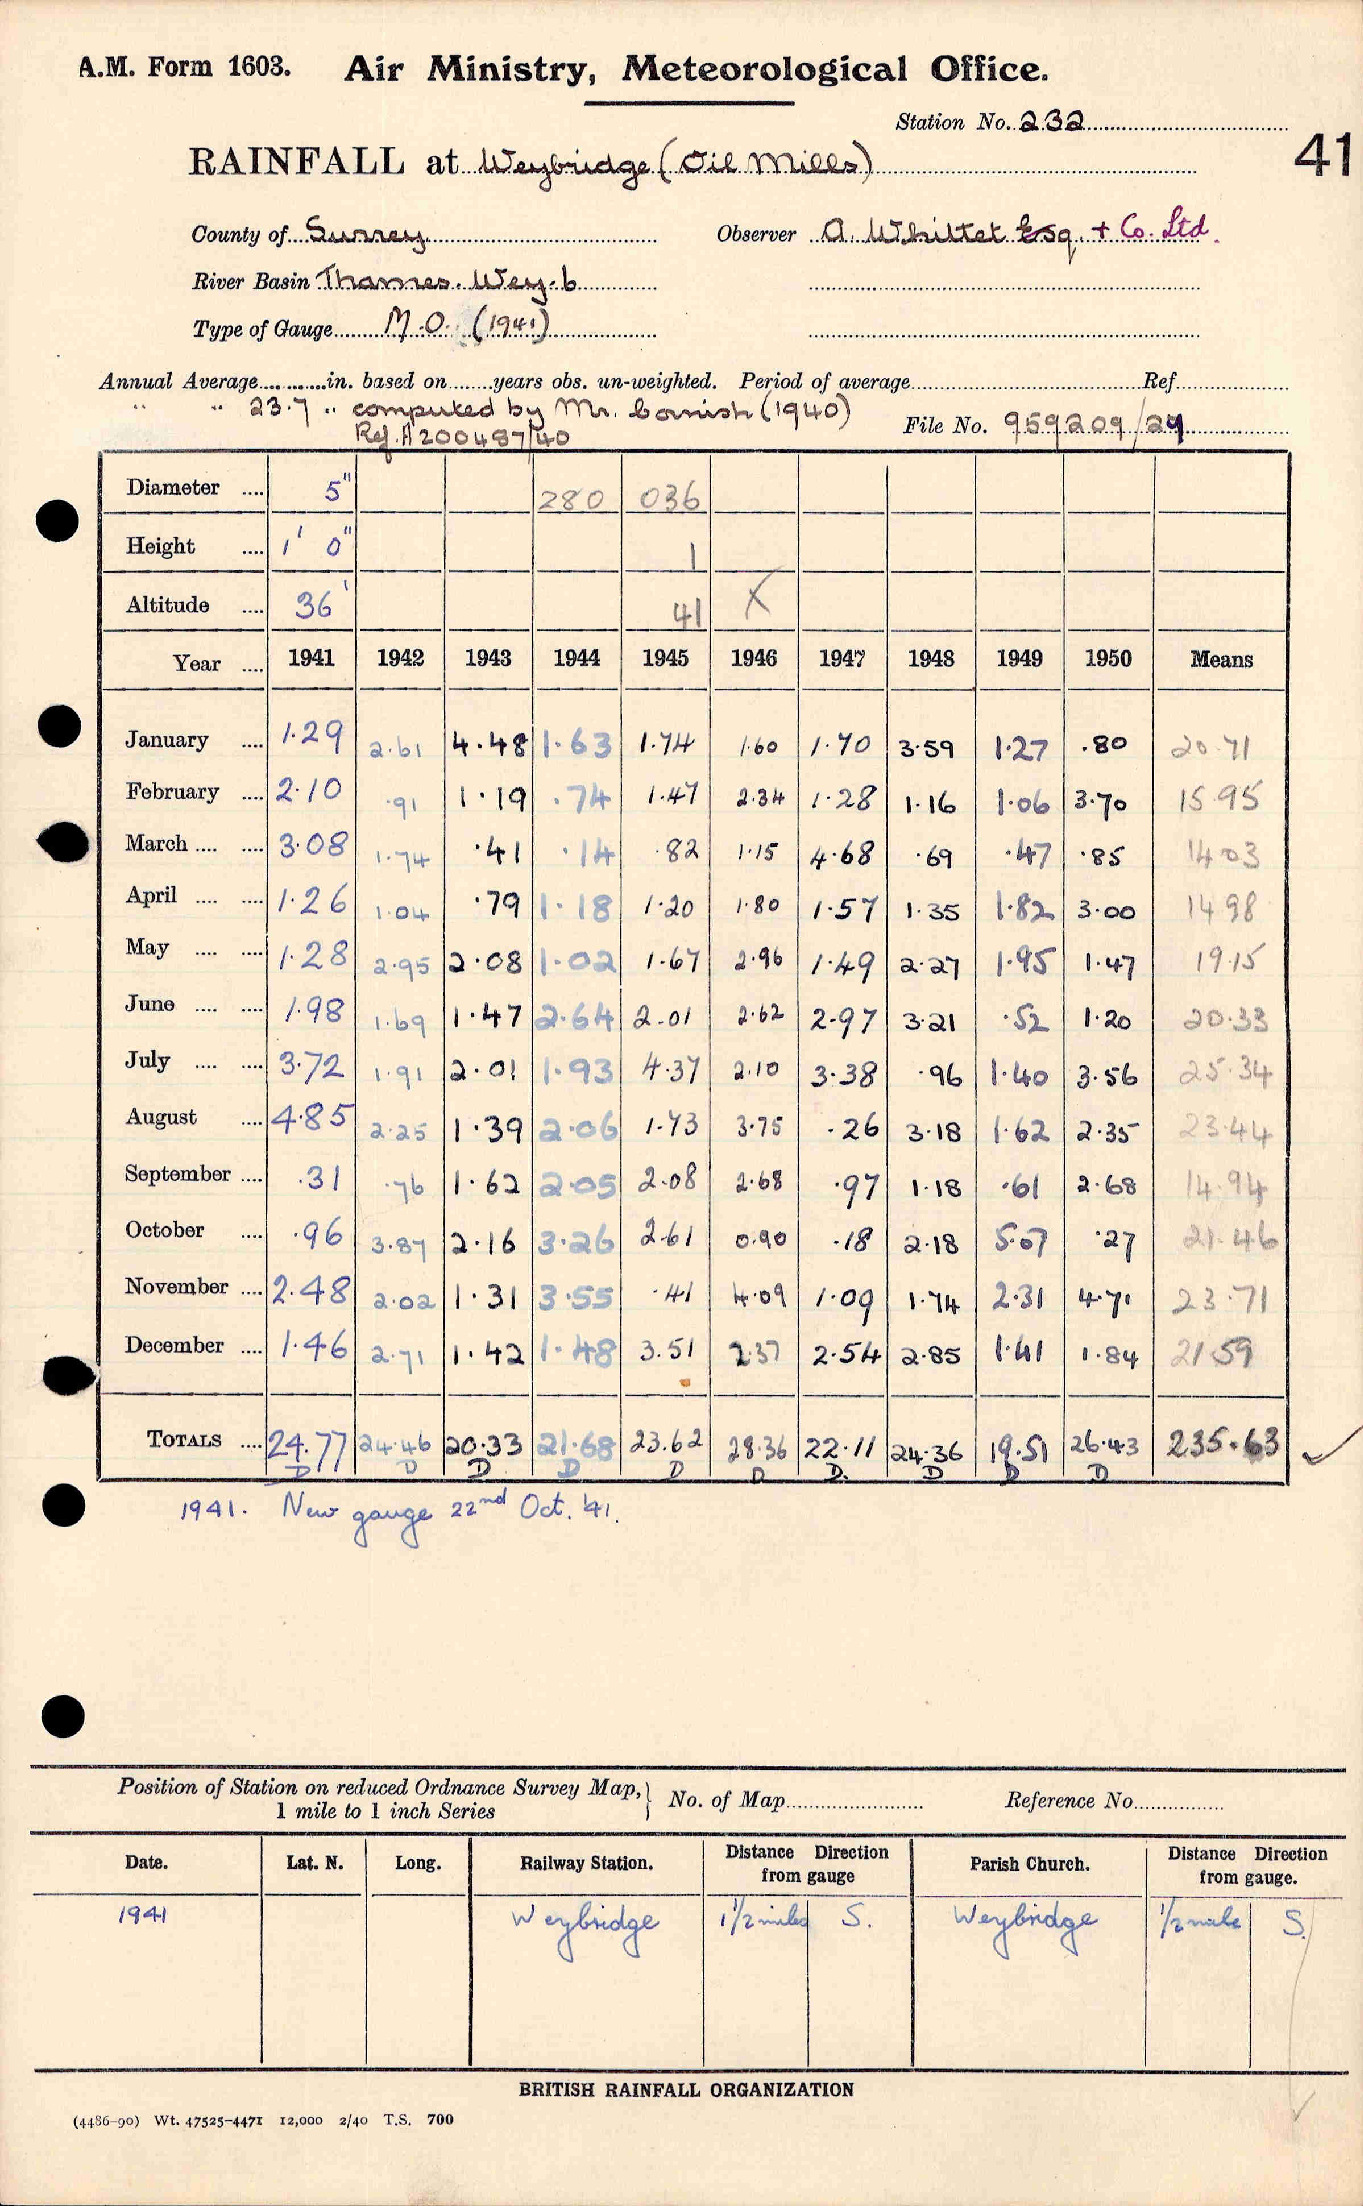 A.M. Form 1603. Air Ministry, Meteorological Office.
Station No. 232
41
RAINFALL at Weybridge (Oil Mills)
County of Surrey Observer A. Whittet Esq. + Co. Ltd.
River Basin Thames. Wey. b
Type of Gauge M.O. (1941)
Annual Average in. based on years obs. un-weighted. Period of average Ref.
" " 23.7 " computed by Mr. Cornish (1940) File No. 959209/24
Ref. A200487/40
Diameter .... 5" 280 036
Height .... 1' 0" 1
Altitude .... 36' 41 X
Year .... 1941 1942 1943 1944 1945 1946 1947 1948 1949 1950 Means
January .... 1.29 2.61 4.48 1.63 1.74 1.60 1.70 3.59 1.27 .80 20.71
February .... 2.10 .91 1.19 .74 1.47 2.34 1.28 1.16 1.06 3.70 15.95
March .... .... 3.08 1.74 .41 .14 .82 1.15 4.68 .69 .47 .85 14.03
April .... .... 1.26 1.04 .79 1.18 1.20 1.80 1.57 1.35 1.82 3.00 14.98
May .... .... 1.28 2.95 2.08 1.02 1.67 2.96 1.49 2.27 1.95 1.47 19.15
June .... .... 1.98 1.69 1.47 2.64 2.01 2.62 2.97 3.21 .52 1.20 20.33
July .... .... 3.72 1.91 2.01 1.93 4.37 2.10 3.38 .96 1.40 3.56 25.34
August .... 4.85 2.25 1.39 2.06 1.73 3.75 .26 3.18 1.62 2.35 23.44
September .... .31 .76 1.62 2.05 2.08 2.68 .97 1.18 .61 2.68 14.94
October .... .96 3.87 2.16 3.26 2.61 0.90 .18 2.18 5.07 .27 21.46
November .... 2.48 2.02 1.31 3.55 .41 4.09 1.09 1.74 2.31 4.71 23.71
December .... 1.46 2.71 1.42 1.48 3.51 2.37 2.54 2.85 1.41 1.84 21.59
TOTALS .... 24.77 24.46 20.33 21.68 23.62 28.36 22.11 24.36 19.51 26.43 235.63
D D D D D D D. D D D
1941. New gauge 22nd Oct. '41.
Position of Station on reduced Ordnance Survey Map, No. of Map Reference No.
1 mile to 1 inch Series
Date. Lat. N. Long. Railway Station. Distance Direction from gauge Parish Church. Distance Direction from gauge.
1941 Weybridge 1 1/2 miles S. Weybridge 1/2 mile S.
BRITISH RAINFALL ORGANIZATION
(4486-90) Wt. 47525-4471 12,000 2/40 T.S. 700